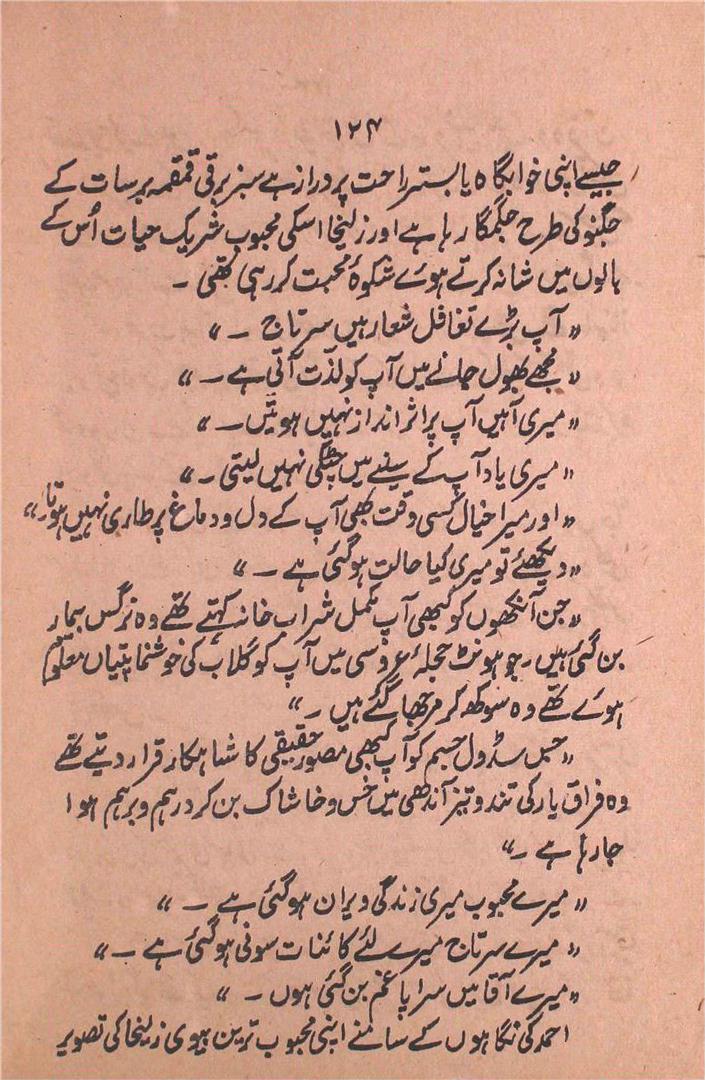 ۱۲۴
جیسے اپنی خوابگاہ یا بستر راحت پر دراز ہے سبز برقی قمقمہ برسات کے
جگنو کی طرح جگمگا رہا ہے اور زلیخا اسکی محبوب شریک حیات اُس کے
بالوں میں شانہ کرتے ہوئے شکوۂ محبت کر رہی تھی ۔
"آپ بڑے تغافل شعار ہیں سرتاج ۔"
"مجھے بھول جانے میں آپ کو لذّت آتی ہے ۔"
"میری آہیں آپ پر اثر انداز نہیں ہوتیں ۔"
"میری یاد آپ کے سینے میں چٹکی نہیں لیتی ۔"
"اور میرا خیال کسی وقت بھی آپ کے دل و دماغ پر طاری نہیں ہوتا ۔"
"دیکھئے تو میری کیا حالت ہوگئی ہے ۔"
"جن آنکھوں کو کبھی آپ مکمل شراب خانہ کہتے تھے وہ نرگس بیمار
بن گئی ہیں ۔ جو ہونٹ حجلۂ عروسی میں آپ کو گلاب کی خوشنما پتیاں معلوم
ہوئے تھے وہ سوکھ کر مرجھا گئے ہیں ۔"
"جس سڈول جسم کو آپ کبھی مصور حقیقی کا شاہکار قرار دیتے تھے
وہ فراق یار کی تند و تیز آندھی میں خس و خاشاک بن کر درہم و برہم ہوا
جا رہا ہے ۔"
"میرے محبوب میری زندگی ویران ہوگئی ہے ۔"
"میرے سرتاج میرے لئے کائنات سونی ہوگئی ہے ۔"
"میرے آقا میں سراپا غم بن گئی ہوں ۔"
احمد کی نگاہوں کے سامنے اپنی محبوب ترین بیوی زلیخا کی تصویر